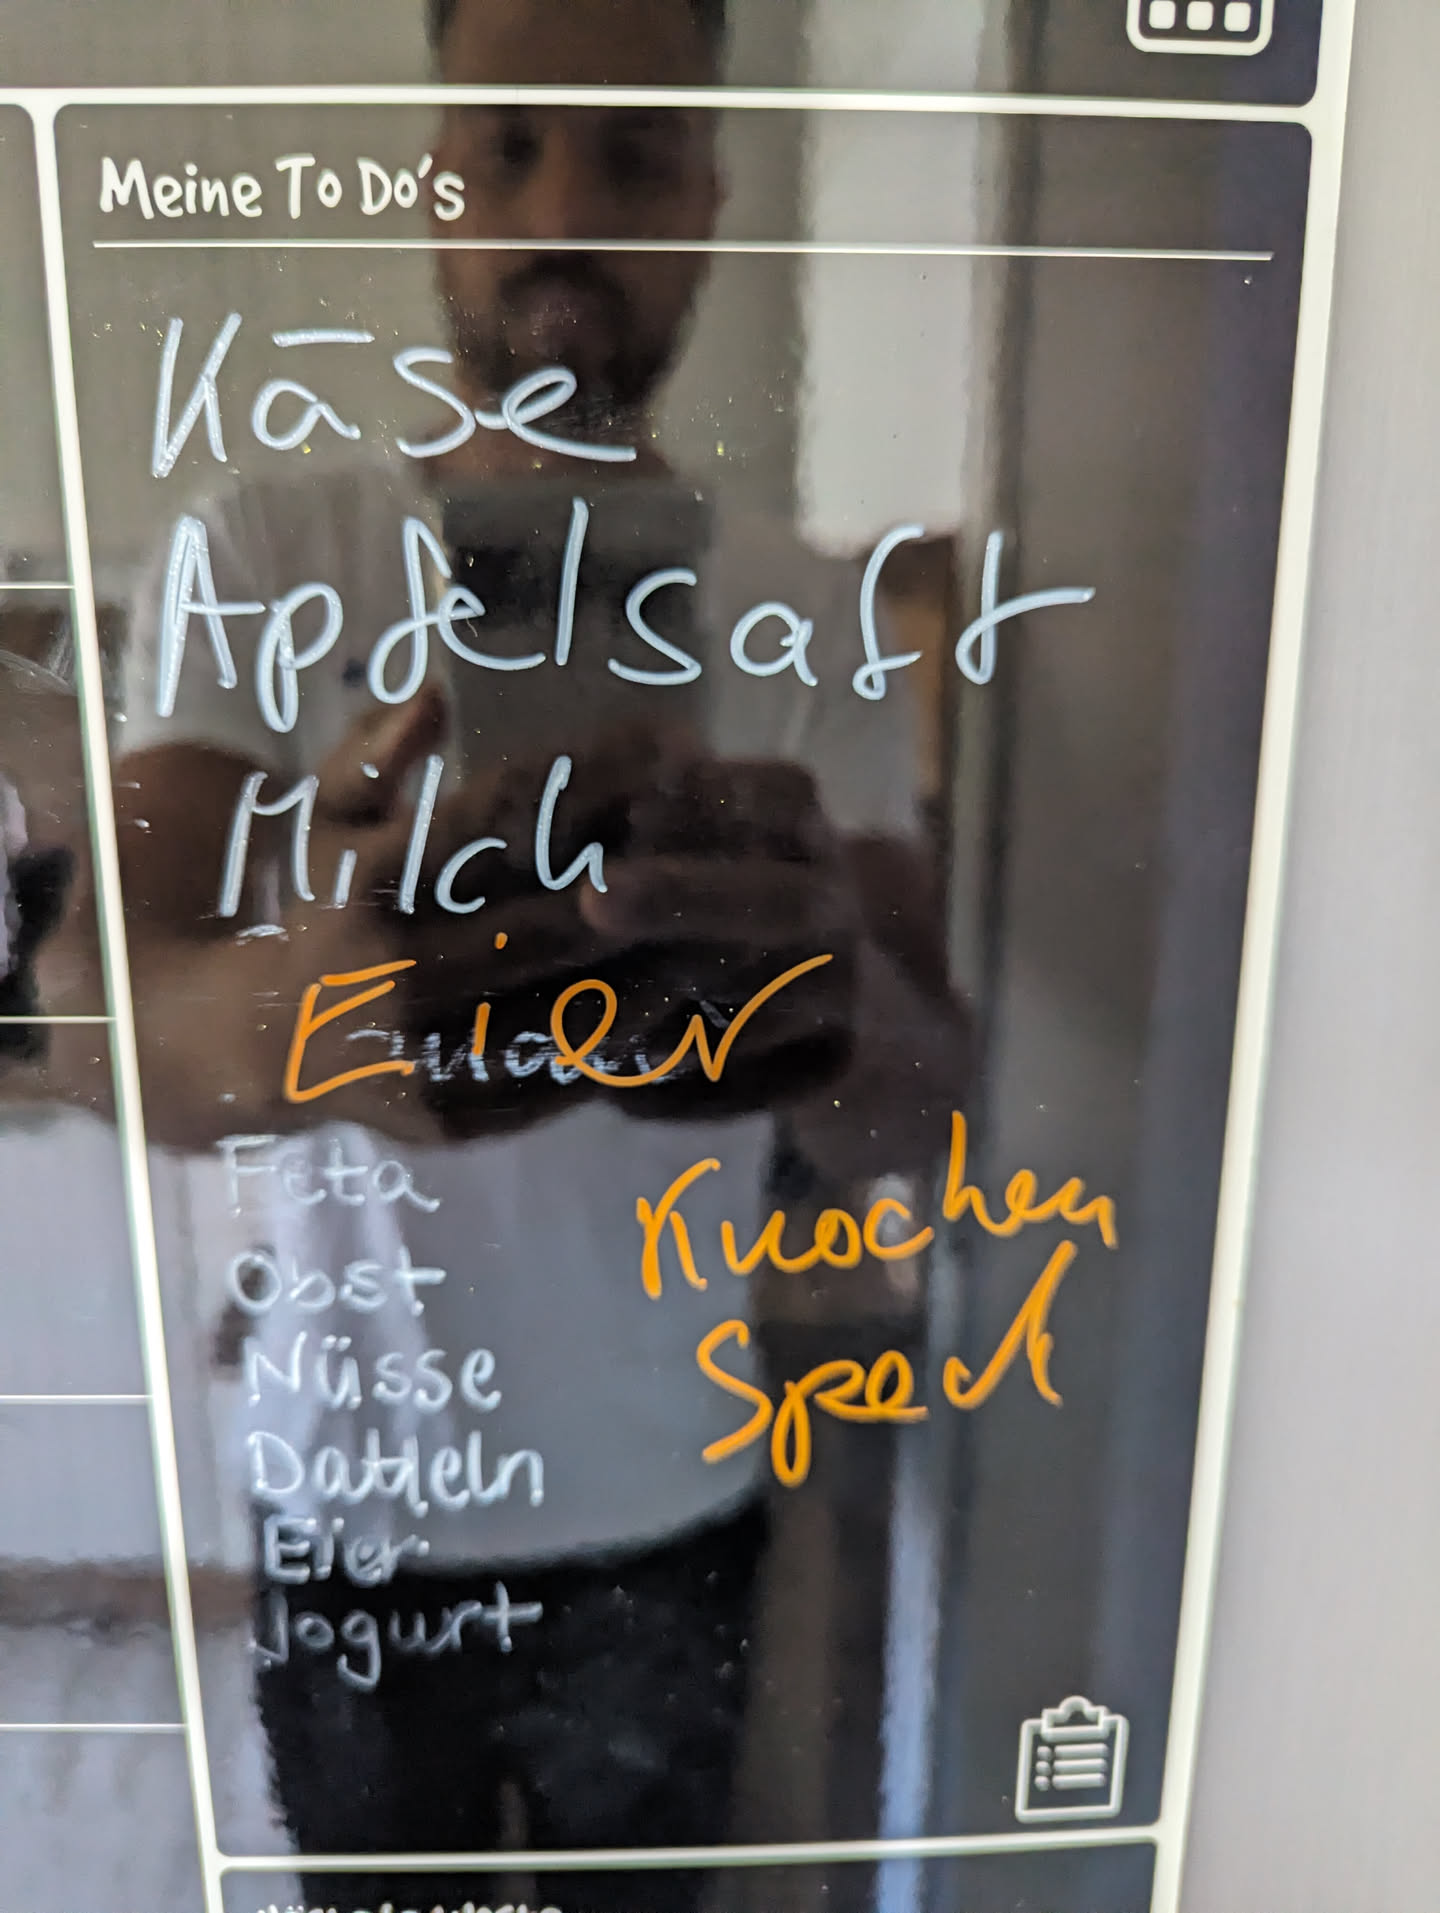 Meine To Do's
Käse
Apfelsaft
Milch
Eier
Feta
Knochen
Obst
Speck
Nüsse
Datteln
Eier
Jogurt